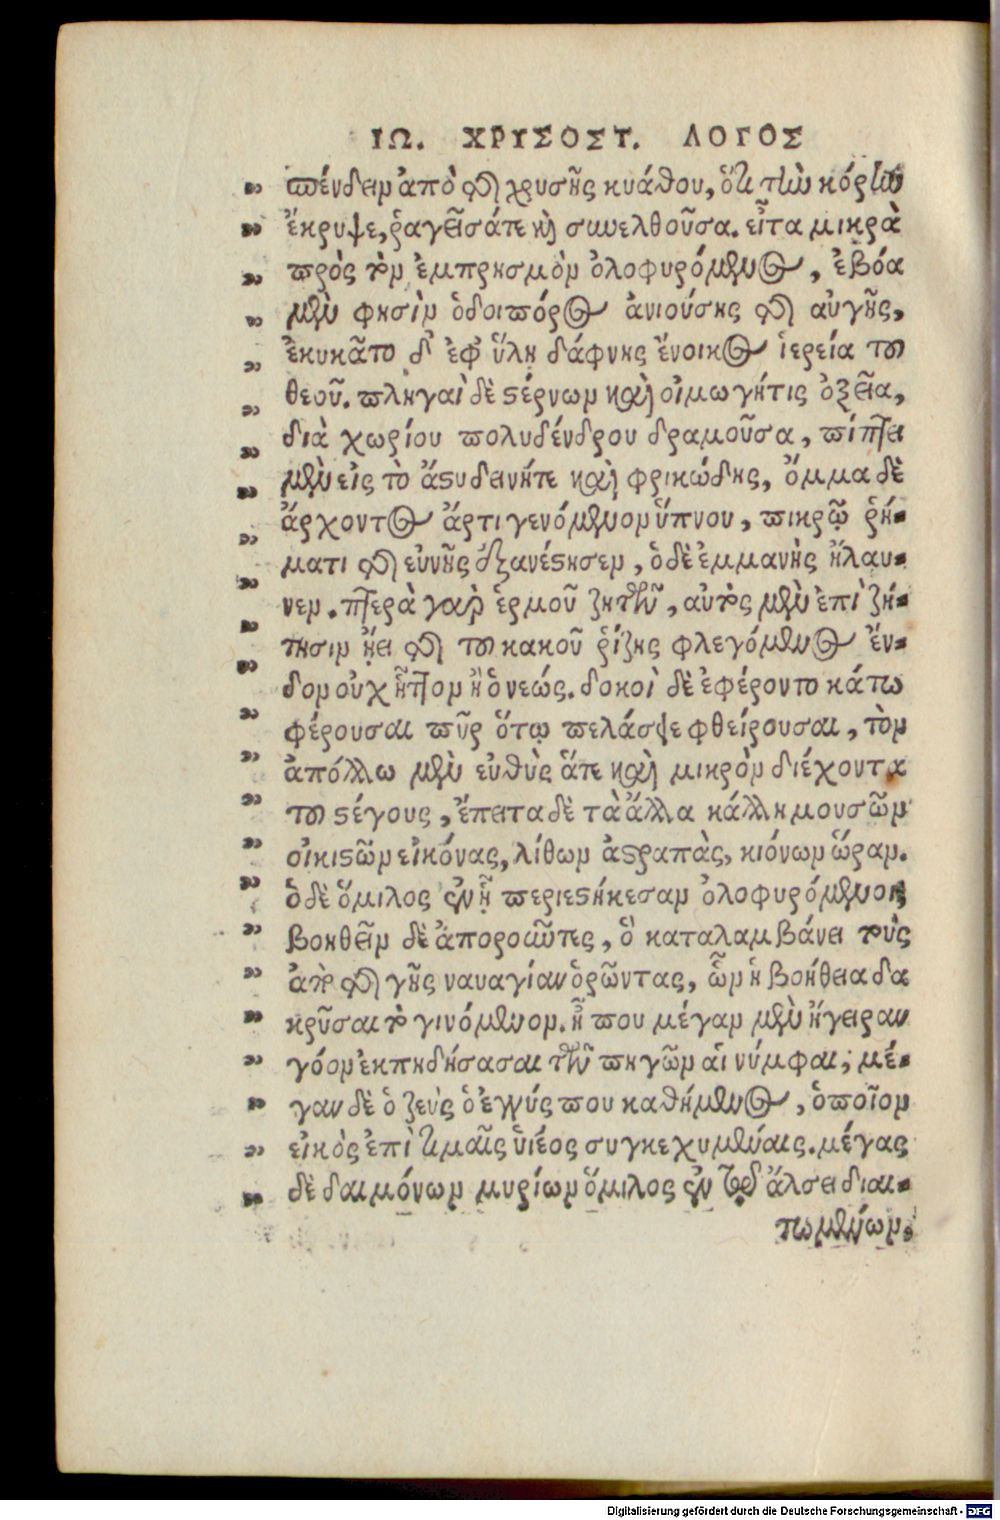 ΙΩ. ΧΡΥΣΟΣΤ. ΛΟΓΟΣ
σπένδειν ἀπὸ τῆς χρυσῆς κυάθου, ὅτι τὴν κόρην
ἔκρυψε, ῥαγεῖσάτε καὶ συνελθοῦσα. εἶτα μικρὰ
πρὸς τὸν ἐμπρησμὸν ὀλοφυρόμενος, ἐβόα
μὲν φησὶν ὁδοιπόρος ἀνιούσης τῆς αὐγῆς,
ἐκυκᾶτο δ' ἐφ' ὕλῃ δάφνης ἔνοικος ἱερεία τοῦ
θεοῦ. πληγαὶ δὲ στέρνων καὶ οἰμωγήτις ὀξεῖα,
διὰ χωρίου πολυδένδρου δραμοῦσα, πίπτει
μὲν εἰς τὸ ἄστυ δεινήτε καὶ φρικώδης, ὄμμα δὲ
ἄρχοντος ἄρτι γενόμενον ὕπνου, πικρῷ ῥή-
ματι τῆς εὐνῆς ἐξανέστησεν, ὁ δὲ ἐμμανὴς ἤλαυ-
νεν. πτερὰ γὰρ ἑρμοῦ ζητῶν, αὐτὸς μὲν ἐπὶ ζή-
τησιν ᾔει τῆς τοῦ κακοῦ ῥίζης φλεγόμενος ἔν-
δον οὐχ ἧττον ἢ ὁ νεώς. δοκοὶ δὲ ἐφέροντο κάτω
φέρουσαι πῦρ ὅτῳ πελάσψε φθείρουσαι, τὸν
ἀπόλλω μὲν εὐθὺς ἅτε καὶ μικρὸν διέχοντα
τοῦ στέγους, ἔπειτα δὲ τὰ ἄλλα κάλλη μουσῶν
οἰκιστῶν εἰκόνας, λίθων ἀστραπὰς, κιόνων ὥραν.
ὁ δὲ ὅμιλος ἐν ᾗ περιεστήκεσαν ὀλοφυρόμενοι,
βοηθεῖν δὲ ἀποροῦντες, ὃ καταλαμβάνει τοὺς
ἀπὸ τῆς γῆς ναυαγίαν ὁρῶντας, ὧν ἡ βοήθεια δα
κρῦσαι τὸ γινόμενον. ἦ που μέγαν μὲν ἤγειραν
γόον ἐκπηδήσασαι τῶν πηγῶν αἱ νύμφαι, μέ-
γαν δὲ ὁ ζεὺς ὁ ἐγγύς που καθήμενος, ὁποῖον
εἰκὸς ἐπὶ τιμαῖς ὑιέος συγκεχυμέναις. μέγας
δὲ δαιμόνων μυρίων ὅμιλος ἐν τῷ ἄλσει διαι-
τωμένων.
Digitalisierung gefördert durch die Deutsche Forschungsgemeinschaft - DFG